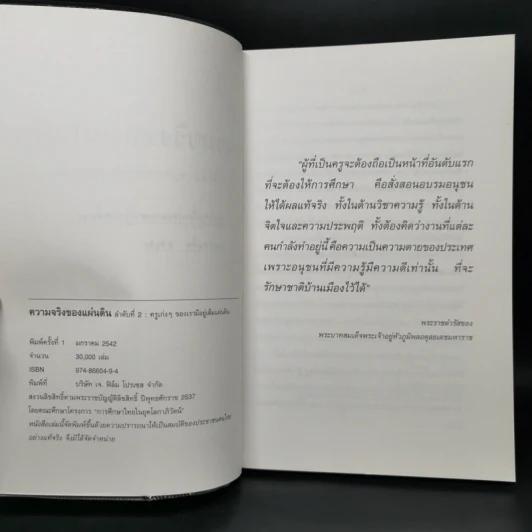 ความจริงของแผ่นดิน ลำดับที่ 2 : ครูเก่งๆ ของเรามีอยู่เต็มแผ่นดิน
พิมพ์ครั้งที่ 1 มกราคม 2542
จำนวน 30,000 เล่ม
ISBN 974-86604-9-4
พิมพ์ที่ บริษัท เจ. ฟิล์ม โปรเซส จำกัด
สงวนลิขสิทธิ์ตามพระราชบัญญัติลิขสิทธิ์ ปีพุทธศักราช 2537
โดยคณะศึกษาโครงการ "การศึกษาไทยในยุคโลกาภิวัตน์"
หนังสือเล่มนี้จัดพิมพ์ขึ้นด้วยความปรารถนาให้เป็นสมบัติของประชาชนคนไทย
อย่างแท้จริง จึงมิได้จัดจำหน่าย
"ผู้ที่เป็นครูจะต้องถือเป็นหน้าที่อันดับแรก
ที่จะต้องให้การศึกษา คือสั่งสอนอบรมอนุชน
ให้ได้ผลแท้จริง ทั้งในด้านวิชาความรู้ ทั้งในด้าน
จิตใจและความประพฤติ ทั้งต้องคิดว่างานที่แต่ละ
คนกำลังทำอยู่นี้ คือความเป็นความตายของประเทศ
เพราะอนุชนที่มีความรู้มีความดีเท่านั้น ที่จะ
รักษาชาติบ้านเมืองไว้ได้"
พระราชดำรัสของ
พระบาทสมเด็จพระเจ้าอยู่หัวภูมิพลอดุลยเดชมหาราช